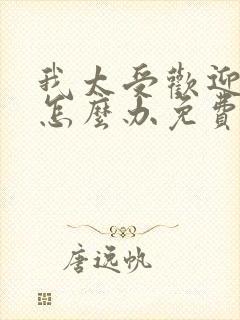 我太受歡迎
怎麼办免費
唐遠帆